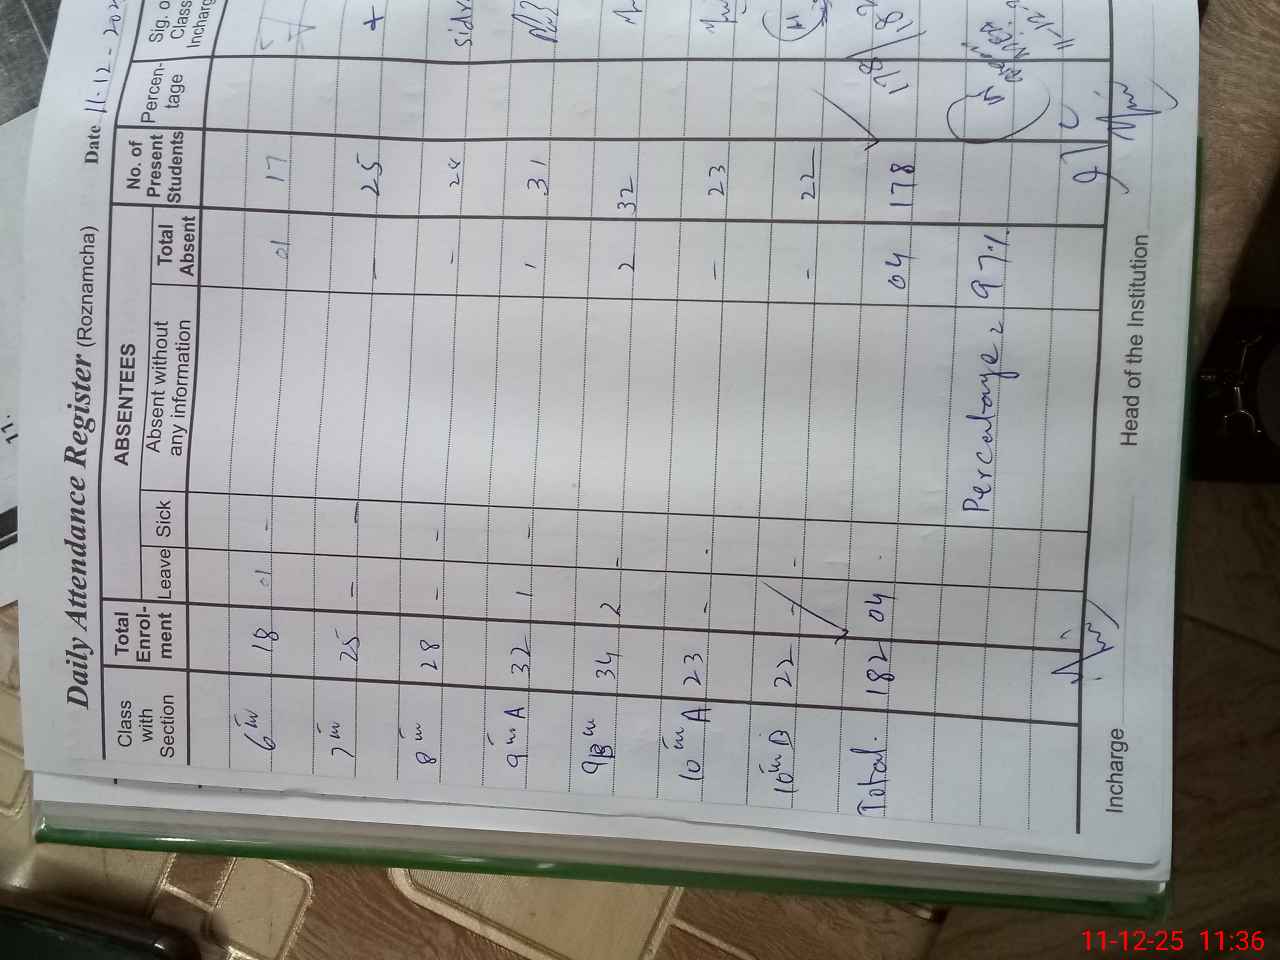 Daily Attendance Register (Roznamcha) Date 11-12-202
Class with Section Total Enrol-ment ABSENTEES Leave Sick Absent without any information Total Absent No. of Present Students Percen-tage Sig. o Class Incharg
6th 18 01 - 01 17
7th 25 - - - 25
8th 28 - - - 28
9th A 32 1 - 1 31
9B th 34 2 - 2 32
10th A 23 - - - 23
10th B 22 - - - 22
Total. 182 04 . 04 178 178/182
Percentage = 97%
11-12-2
Incharge
Head of the Institution
11-12-25 11:36